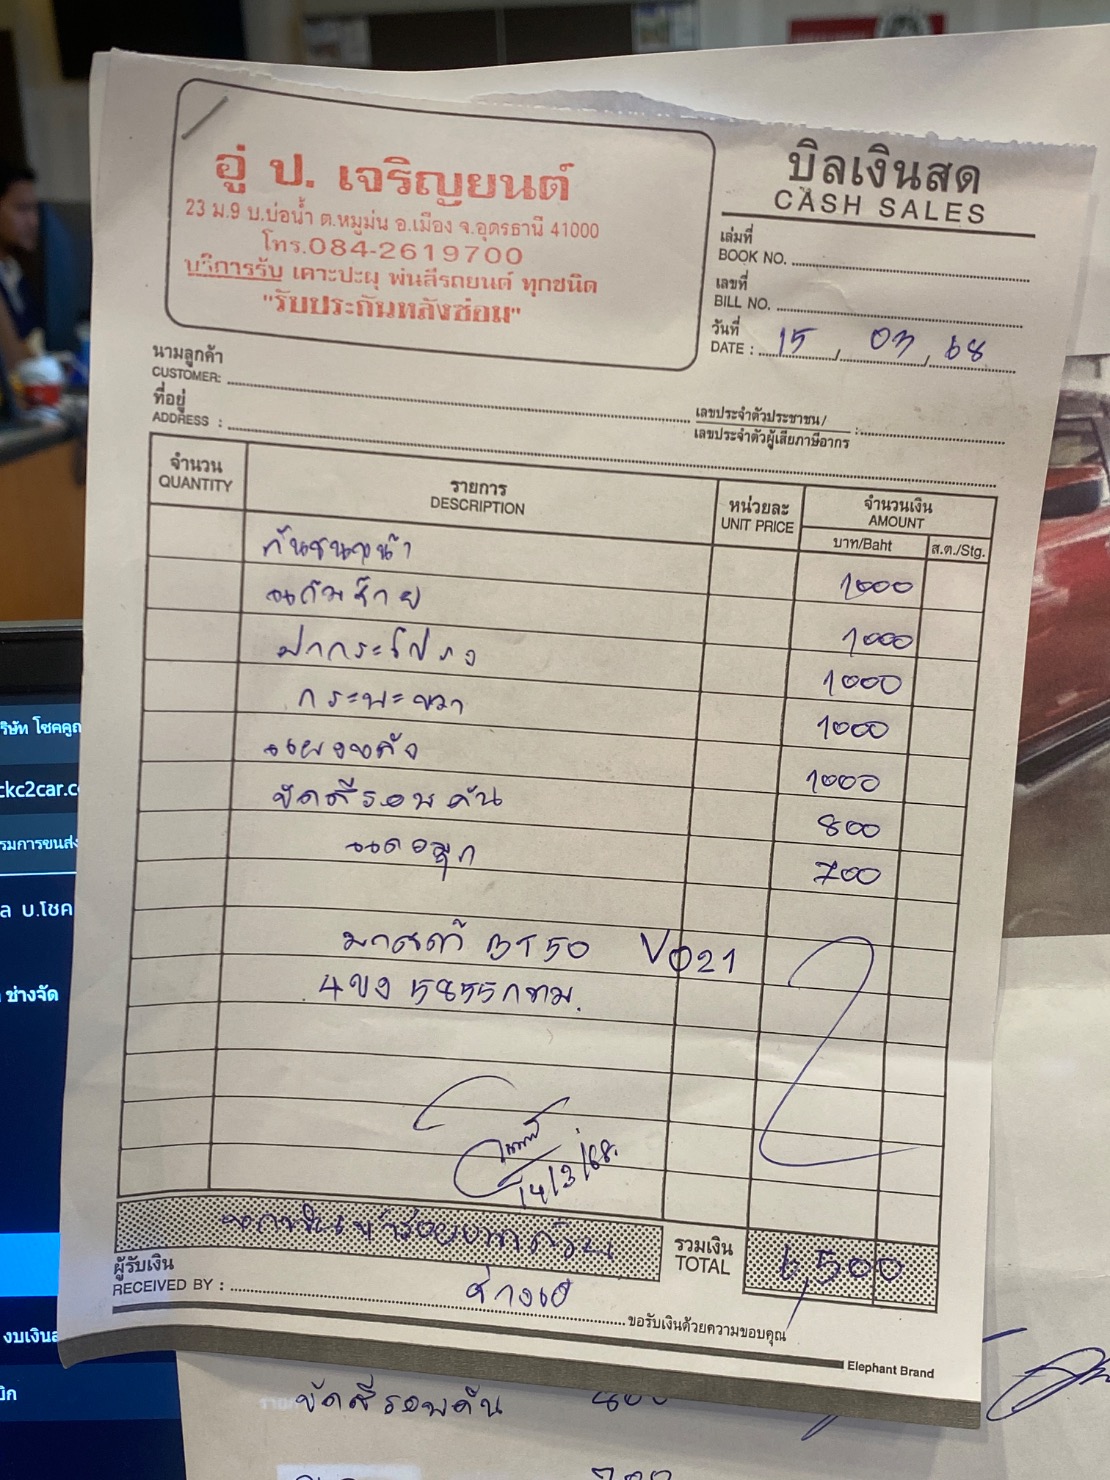 อู่ ป. เจริญยนต์
23 ม.9 บ.บ่อน้ำ ต.หมูม่น อ.เมือง จ.อุดรธานี 41000
โทร.084-2619700
บริการรับ เคาะปะผุ พ่นสีรถยนต์ ทุกชนิด
"รับประกันหลังซ่อม"
บิลเงินสด
CASH SALES
เล่มที่
BOOK NO.
เลขที่
BILL NO.
วันที่
DATE : 15 , 03 , 68
นามลูกค้า
CUSTOMER:
ที่อยู่
ADDRESS :
เลขประจำตัวประชาชน/
เลขประจำตัวผู้เสียภาษีอากร :
จำนวน
QUANTITY
รายการ
DESCRIPTION
หน่วยละ
UNIT PRICE
จำนวนเงิน
AMOUNT
บาท/Baht
ส.ต./Stg.
กันชนหน้า 1000
แก้มซ้าย 1000
ฝากระโปรง 1000
กระบะขวา 1000
แผงหลัง 1000
ขัดสีรอบคัน 800
700
มาสด้า BT50 V021
4ขง 5855 กทม.
14/3/68.
รวมเงิน
TOTAL
6,500
ผู้รับเงิน
RECEIVED BY :
ขอรับเงินด้วยความขอบคุณ
Elephant Brand
ริษัท โชคคูณ
ckc2car.c
รมการขนส่ง
ล บ.โชค
ช่างจัด
งบเงินส
ขัดสีรอบคัน 800
700